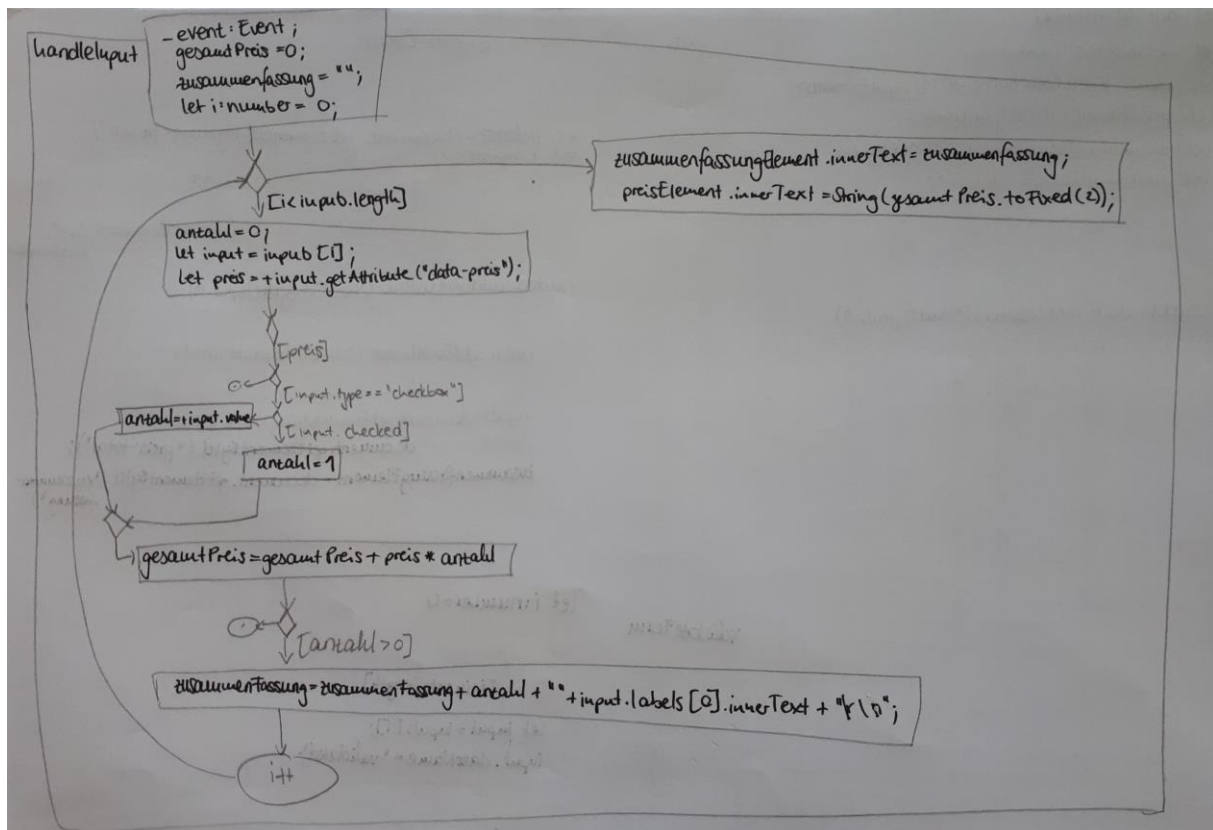 handleInput
_event: Event;
gesamtPreis = 0;
zusammenfassung = "";
let i:number = 0;
zusammenfassungElement.innerText = zusammenfassung;
preisElement.innerText = String(gesamtPreis.toFixed(2));
[i<inpub.length]
antahl = 0;
let input = inpub [i];
let preis = +input.getAttribute("data-preis");
[preis]
[input.type == "checkbox"]
antahl=+input.value
[input.checked]
antahl = 1
gesamtPreis = gesamtPreis + preis * antahl
[antahl > 0]
zusammenfassung = zusammenfassung + antahl + "" + input.labels [0].innerText + "\r\n";
i++